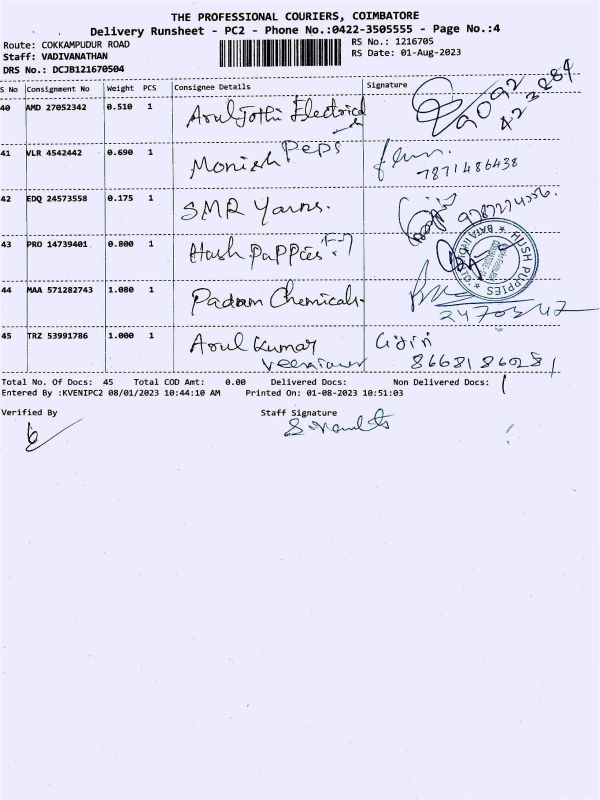 THE PROFESSIONAL COURIERS, COIMBATORE
Delivery Runsheet - PC2 - Phone No.:0422-3505555 - Page No.:4
Route: COKKAMPUDUR ROAD RS No.: 1216705
Staff: VADIVANATHAN RS Date: 01-Aug-2023
DRS No.: DCJB121670504
S No Consignment No Weight PCS Consignee Details Signature
40 AMD 27052342 0.510 1 Arul Jothi Electrical 9092
423284
41 VLR 4542442 0.690 1 Monish Peps
7871486438
42 EDQ 24573558 0.175 1 SMR Yarns.
43 PRO 14739401 0.800 1 Hash Pappies
HUSH PUPPIES
44 MAA 571282743 1.080 1 Padam Chemicals
45 TRZ 53991786 1.000 1 Arul Kumar
8668186028
Total No. Of Docs: 45 Total COD Amt: 0.00 Delivered Docs: Non Delivered Docs:
Entered By :KVENIPC2 08/01/2023 10:44:10 AM Printed On: 01-08-2023 10:51:03
Verified By Staff Signature